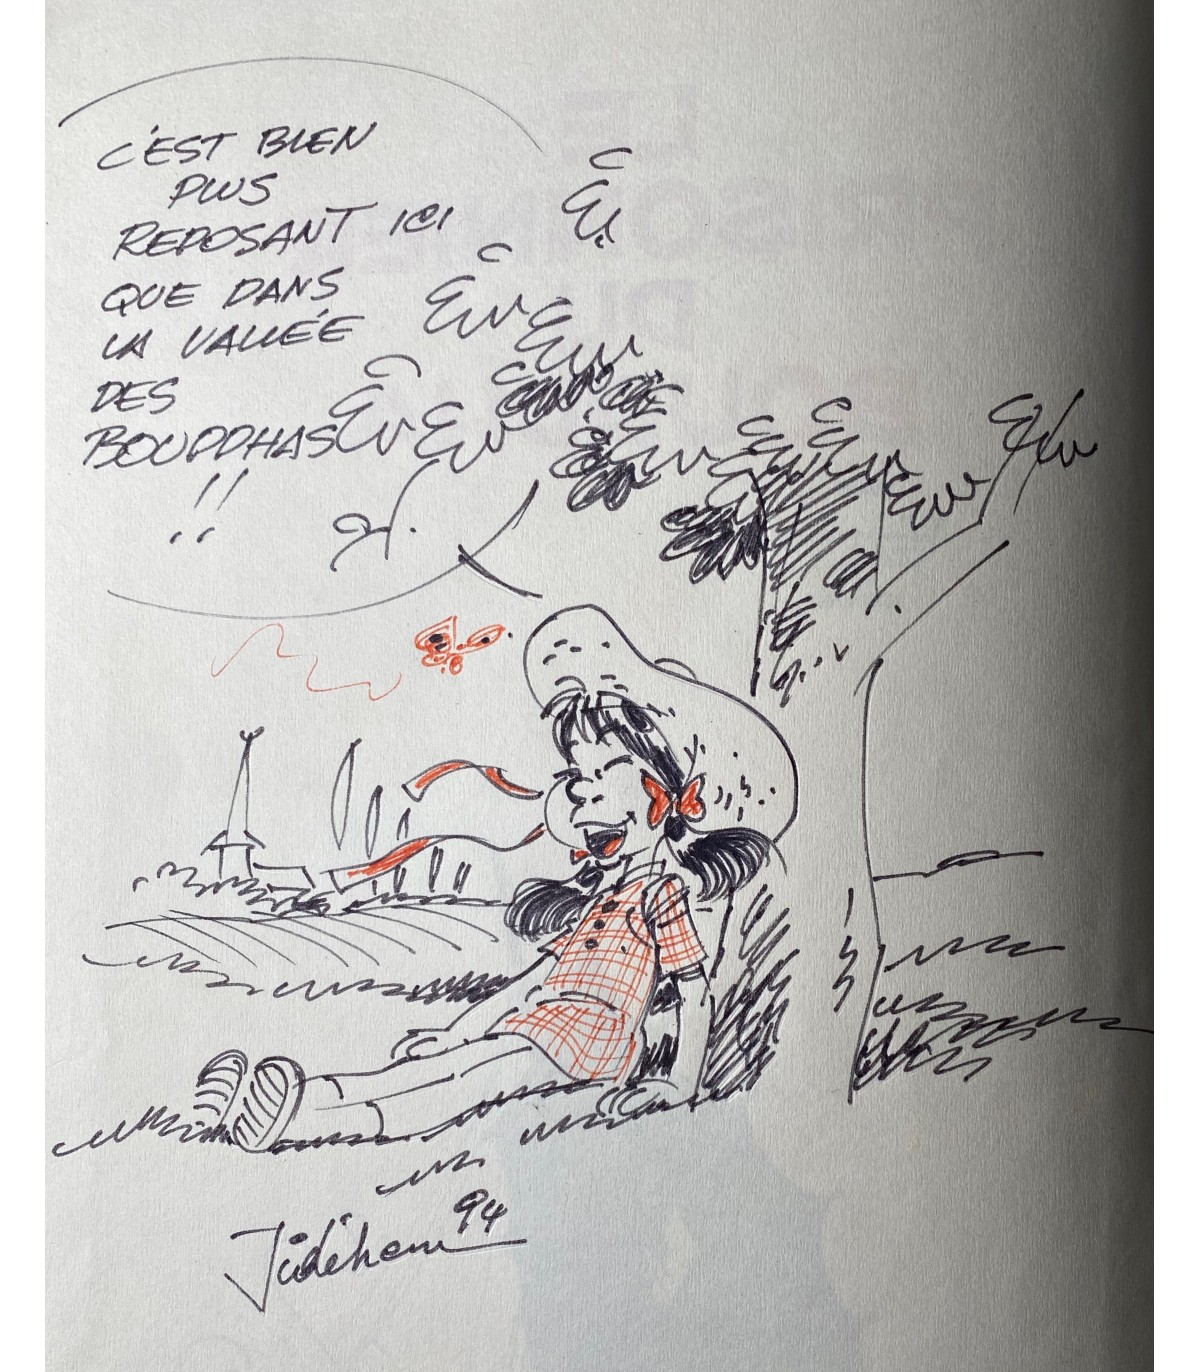 C'EST BIEN
PLUS
REPOSANT ICI
QUE DANS
LA VALLÉE
DES
BOUDDHAS
!!
Jidéhem 94